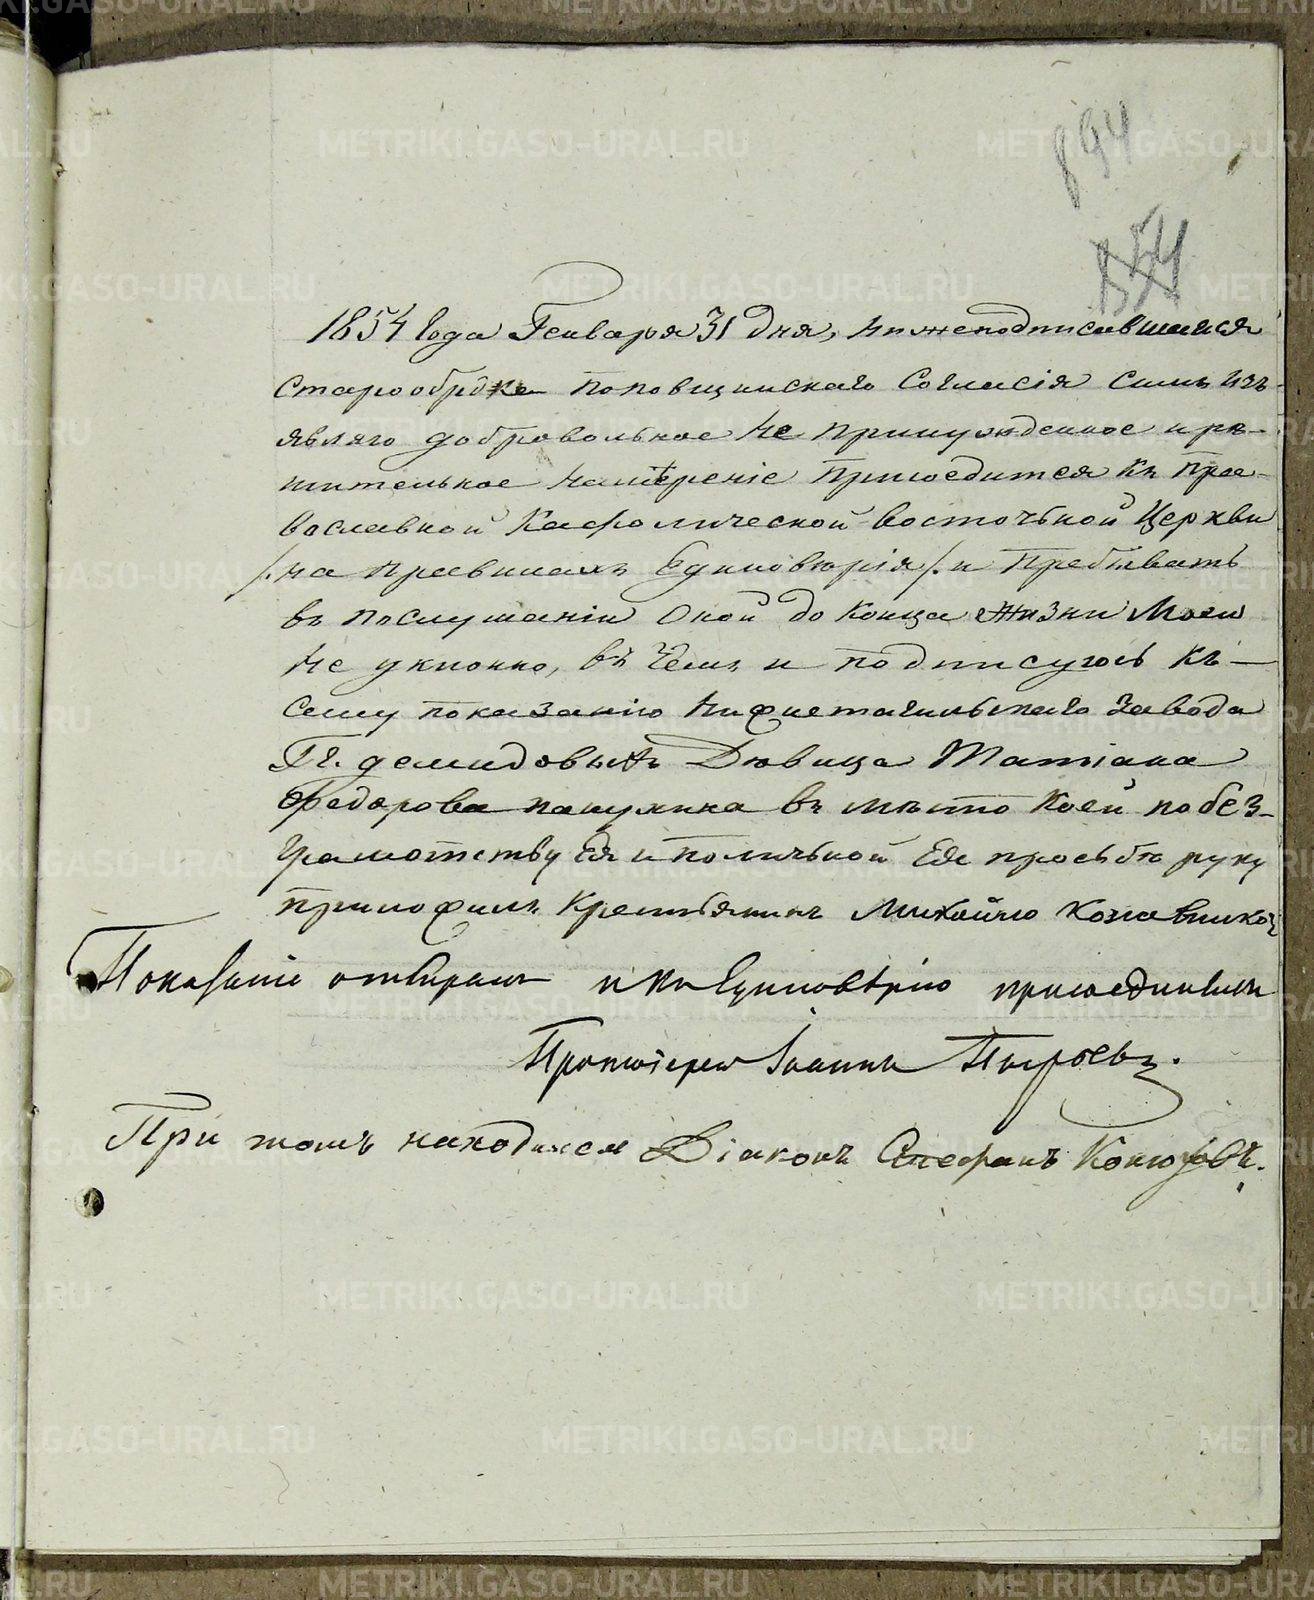 894
854
1854 года Генваря 31 дня, нижеподписавшаяся
Старообрдка поповщинскаго Согласія симъ изъ-
являю добровольное не принужденное и рѣ-
шительное намѣреніе присоедится къ Пра-
вославной Кафолической восточьной Церкви
/. на правилахъ Единовѣрія /. и Пребывать
въ послушаніи Оной до конца жизни Моей
не уклонно, въ чемъ и подписуюсь къ
сему показанію Нижнетагильскаго завода
Гг. демидовыхъ Дѣвица Татіана
Федорова въ мѣсто коей по без-
грамотству Ея и поличьной Ея просьбѣ руку
приложилъ Крестьянинъ Михайло
Показаніе отбиралъ и къ Единовѣрію присоединилъ
Протоіерей Іоаннъ Пырьевъ.
При томъ находился Діаконъ Стефанъ Конюховъ.